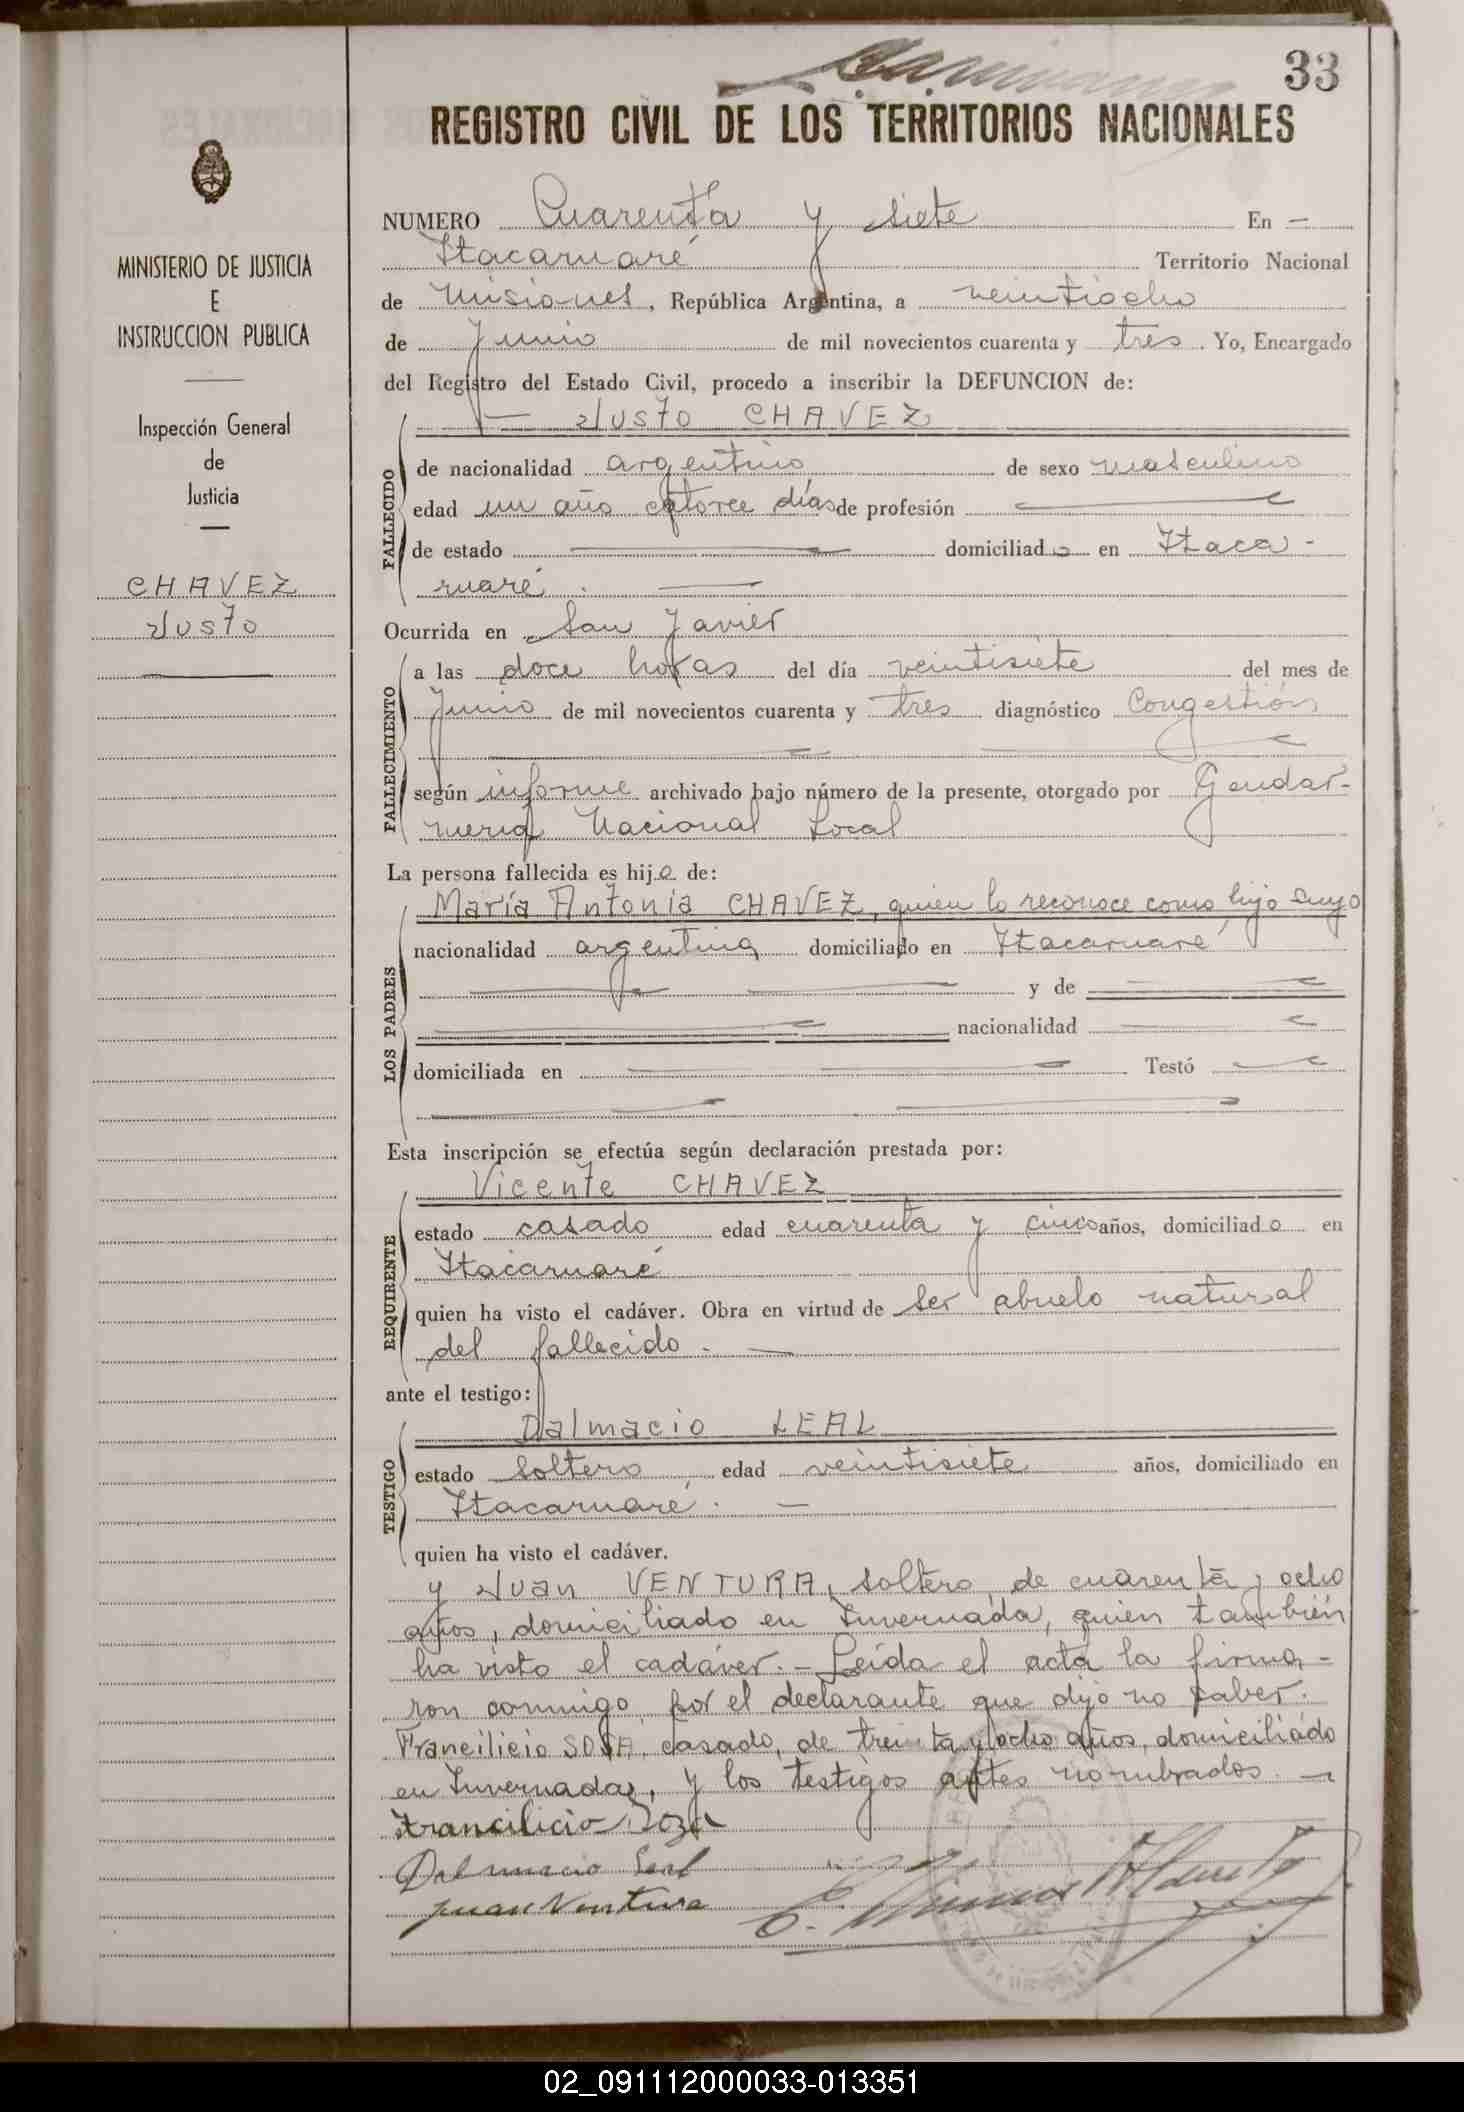 33
REGISTRO CIVIL DE LOS TERRITORIOS NACIONALES
MINISTERIO DE JUSTICIA
E
INSTRUCCION PUBLICA
Inspección General
de
Justicia
CHAVEZ
Justo
NUMERO Cuarenta y siete En —
Itacaruaré Territorio Nacional
de Misiones, República Argentina, a veintiocho
de Junio de mil novecientos cuarenta y tres. Yo, Encargado
del Registro del Estado Civil, procedo a inscribir la DEFUNCION de:
— Justo CHAVEZ
FALLECIDO
de nacionalidad argentino de sexo masculino
edad un año catorce días de profesión —
de estado — domiciliado en Itaca-
ruaré. —
Ocurrida en San Javier
FALLECIMIENTO
a las doce horas del día veintisiete del mes de
Junio de mil novecientos cuarenta y tres diagnóstico Congestión
según informe archivado bajo número de la presente, otorgado por Gendar-
meria Nacional Local
La persona fallecida es hijo de:
LOS PADRES
María Antonia CHAVEZ, quien lo reconoce como hijo suyo
nacionalidad argentina domiciliado en Itacaruaré
y de
nacionalidad
domiciliada en Testó
Esta inscripción se efectúa según declaración prestada por:
REQUIRENTE
Vicente CHAVEZ
estado casado edad cuarenta y cinco años, domiciliado en
Itacaruaré
quien ha visto el cadáver. Obra en virtud de ser abuelo natural
del fallecido. —
ante el testigo:
TESTIGO
Dalmacio LEAL
estado soltero edad veintisiete años, domiciliado en
Itacaruaré. —
quien ha visto el cadáver.
y Juan VENTURA, soltero, de cuarenta y ocho
años, domiciliado en Invernada, quien también
ha visto el cadáver. — Leída el acta la firma-
ron conmigo, por el declarante que dijo no saber.
Francilicio SOSA, casado, de treinta y ocho años, domiciliado
en Invernada, y los testigos antes nombrados. —
Francilicio Soza
Dalmacio Leal
Juan Ventura
02_091112000033-013351